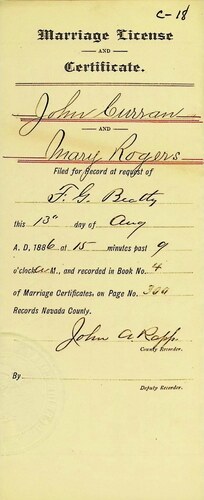 C-18
Marriage License
AND
Certificate.
John Curran
AND
Mary Rogers
Filed for Record at request of
F. G. Beatty
this 13th day of Aug
A. D, 1886 at 15 minutes past 9
o'clock A M., and recorded in Book No. 4
of Marriage Certificates, on Page No. 300
Records Nevada County.
John A Rapp
County Recorder.
By
Deputy Recorder.